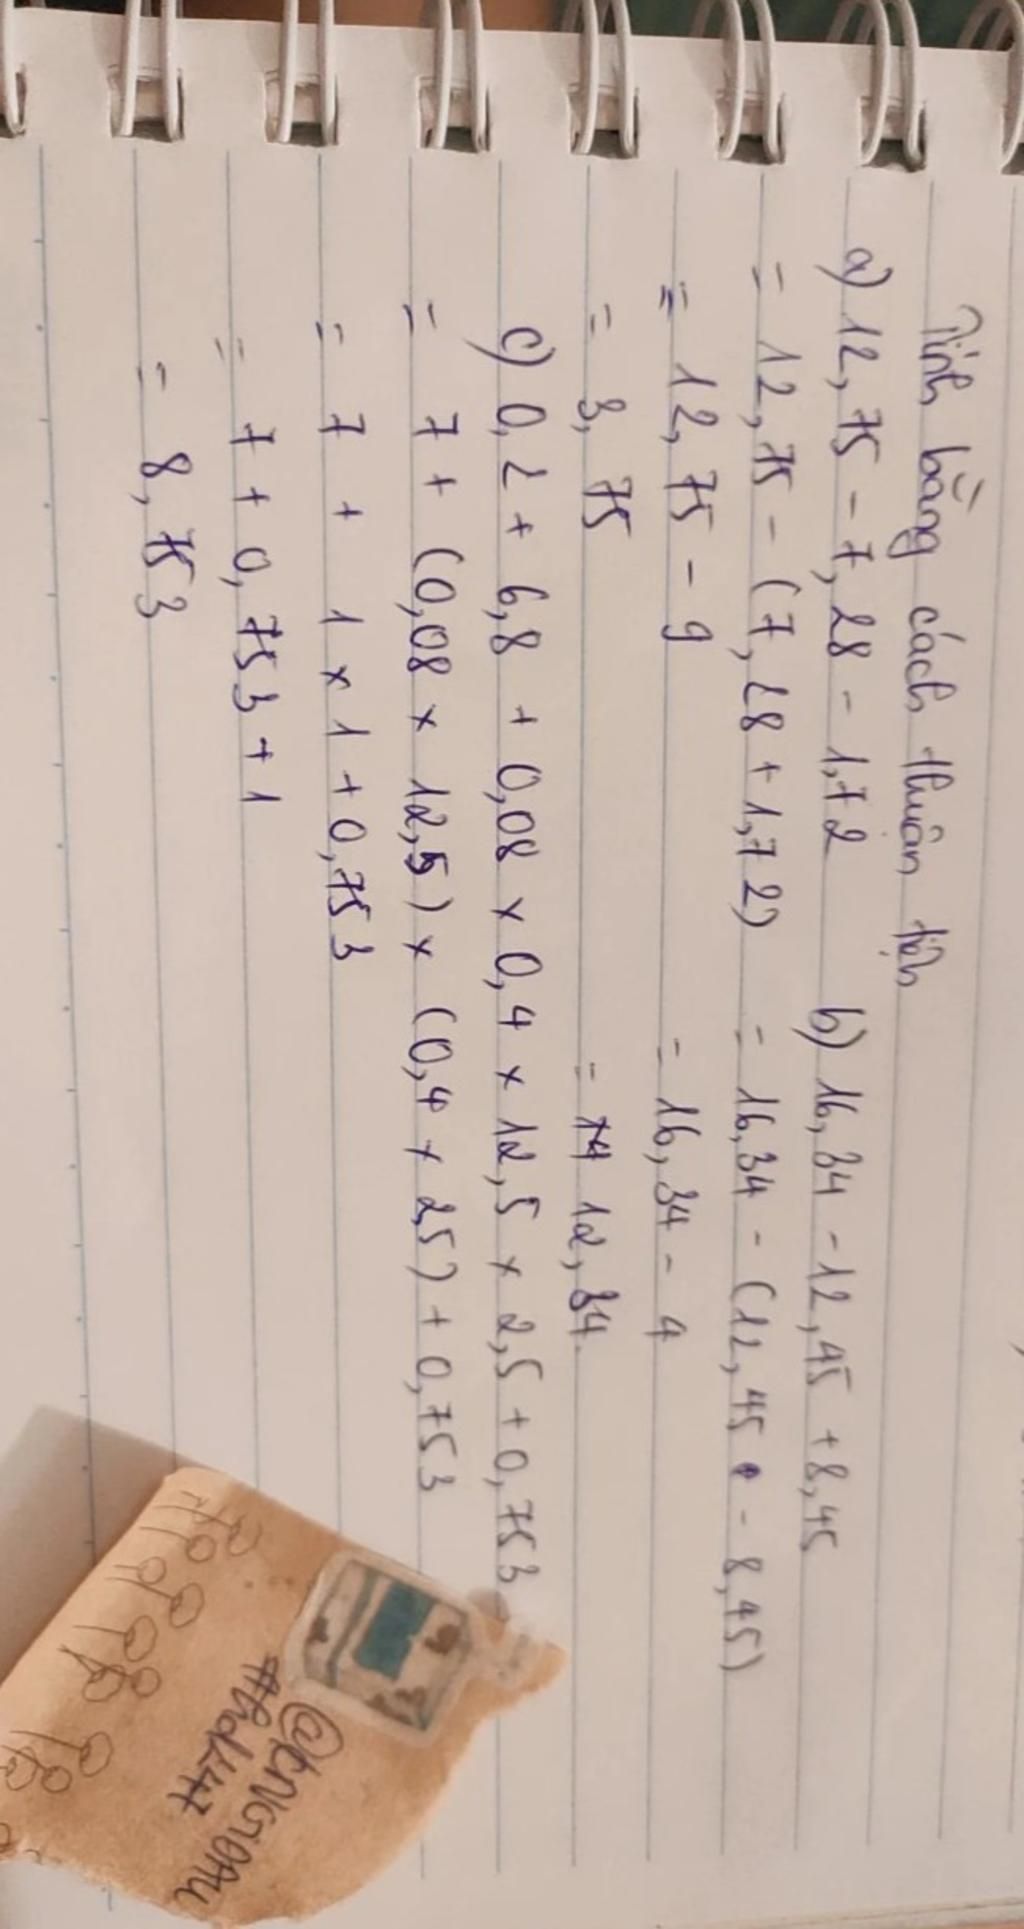 Tính bằng cách thuận tiện
a) 12,75 - 7,28 - 1,72
= 12,75 - (7,28 + 1,72)
= 12,75 - 9
= 3,75
b) 16,34 - 12,45 + 8,45
= 16,34 - (12,45 - 8,45)
= 16,34 - 4
= 12,34
c) 0,2 + 6,8 + 0,08 x 0,4 x 12,5 x 2,5 + 0,753
= 7 + (0,08 x 12,5) x (0,4 x 2,5) + 0,753
= 7 + 1 x 1 + 0,753
= 7 + 0,753 + 1
= 8,753